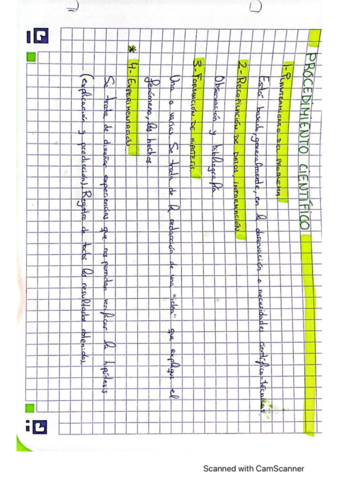 PROCEDIMIENTO CIENTÍFICO
1-PLANTEAMIENTO DEL PROBLEMA
Está basado, generalmente, en la observación o necesidades científico técnicas
2-RECOPILACIÓN DE DATOS, INFORMACIÓN
Observación y bibliografía
3-FORMULACIÓN DE HIPÓTESIS
Una o varias. Se trata de la redacción de una "idea" que explique el
fenómeno, los hechos
* 4- EXPERIMENTACIÓN.
Se trata de diseñar experiencias que nos permitan verificar la hipótesis
(explicación y predicción). Registro de todos los resultados obtenidos.
Scanned with CamScanner